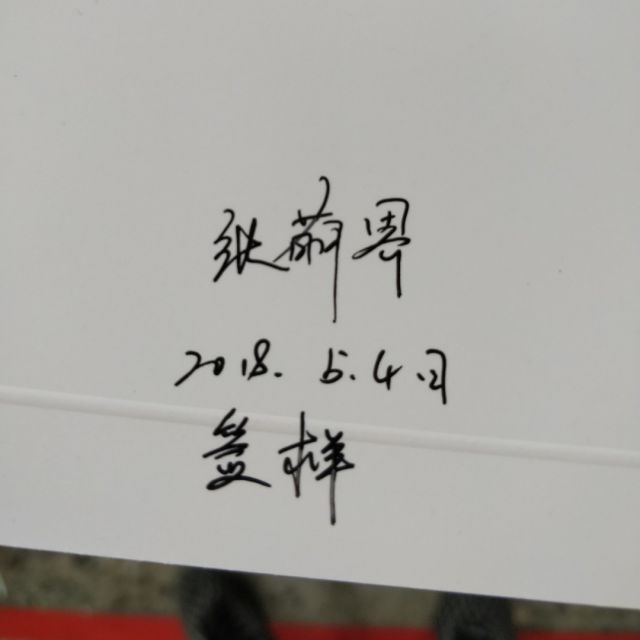 张
2018.5.4.日
签样